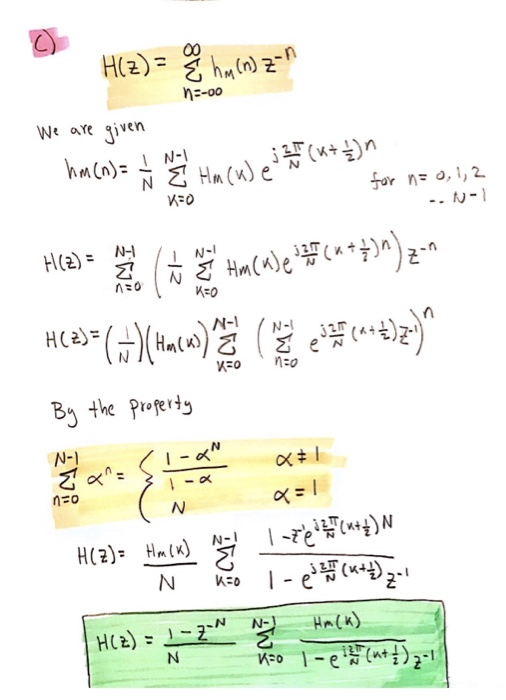 c)
H(z) = ∞ Σ n=-∞ hm(n) z^-n
We are given
hm(n) = 1/N N-1 Σ K=0 Hm(k) e^j 2π/N (k+½)n for n= 0,1,2
.. N-1
H(z) = N-1 Σ n=0 ( 1/N N-1 Σ K=0 Hm(k) e^j 2π/N (k+½)n ) z^-n
H(z) = (1/N)(Hm(k)) N-1 Σ K=0 ( N-1 Σ n=0 e^j 2π/N (k+½) z^-1 )^n
By the property
N-1 Σ n=0 α^n = { 1-α^N / 1-α α≠1
N α=1
H(z) = Hm(k)/N N-1 Σ K=0 1-z^-1 e^j 2π/N (k+½)N / 1-e^j 2π/N (k+½) z^-1
H(z) = 1-z^-N / N N-1 Σ K=0 Hm(k) / 1-e^j 2π/N (k+½) z^-1